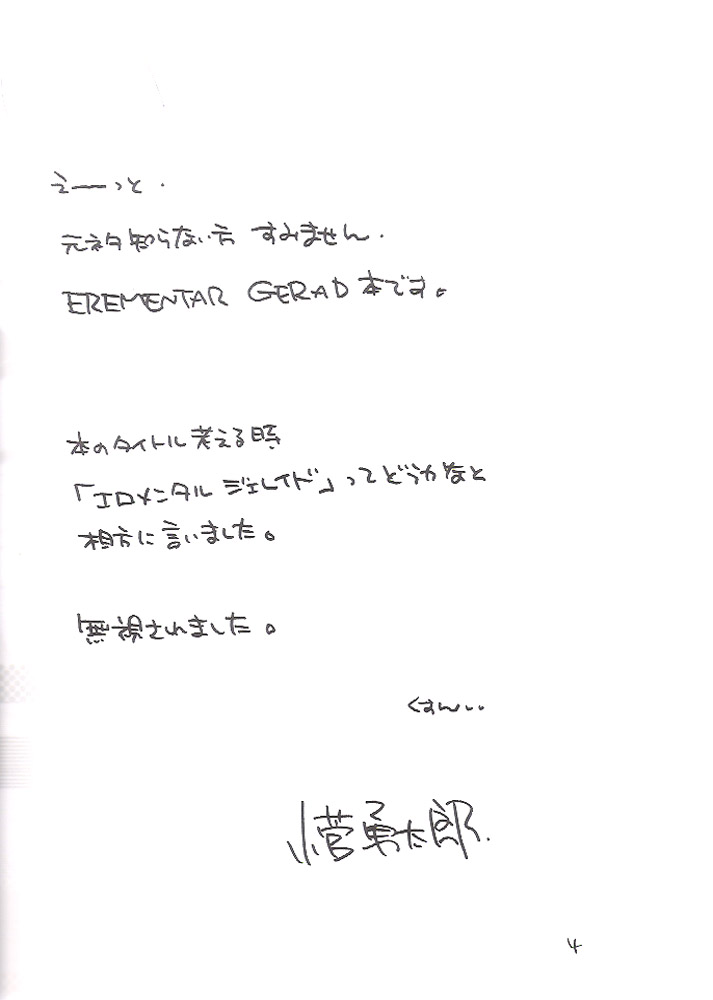 えーっと.
元ネタ知らない方 すみません.
EREMENTAR GERAD 本です。
本のタイトル考える時
「エロメンタル ジェレイド」ってどうかなと
相方に言いました。
無視されました。
くすん..
小菅勇太郎.
4